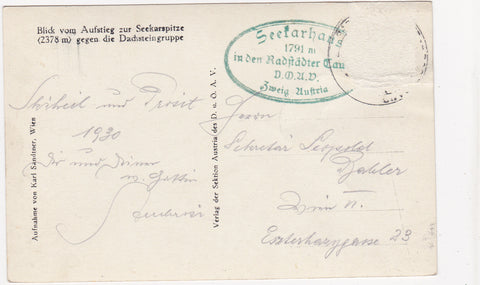 Blick vom Aufstieg zur Seekarspitze
(2378 m) gegen die Dachsteingruppe
Seekarhaus
1791 m
in den Radstädter Tau
D.Ö.A.V.
Zweig Austria
Aufnahme von Karl Sandtner, Wien
Verlag der Sektion Austria des D. u. Ö. A. V.
und Prosit
1930
Dir und Deiner
Herrn
Sekretär Leopold
Wien VI.
Eszterhazygasse 23